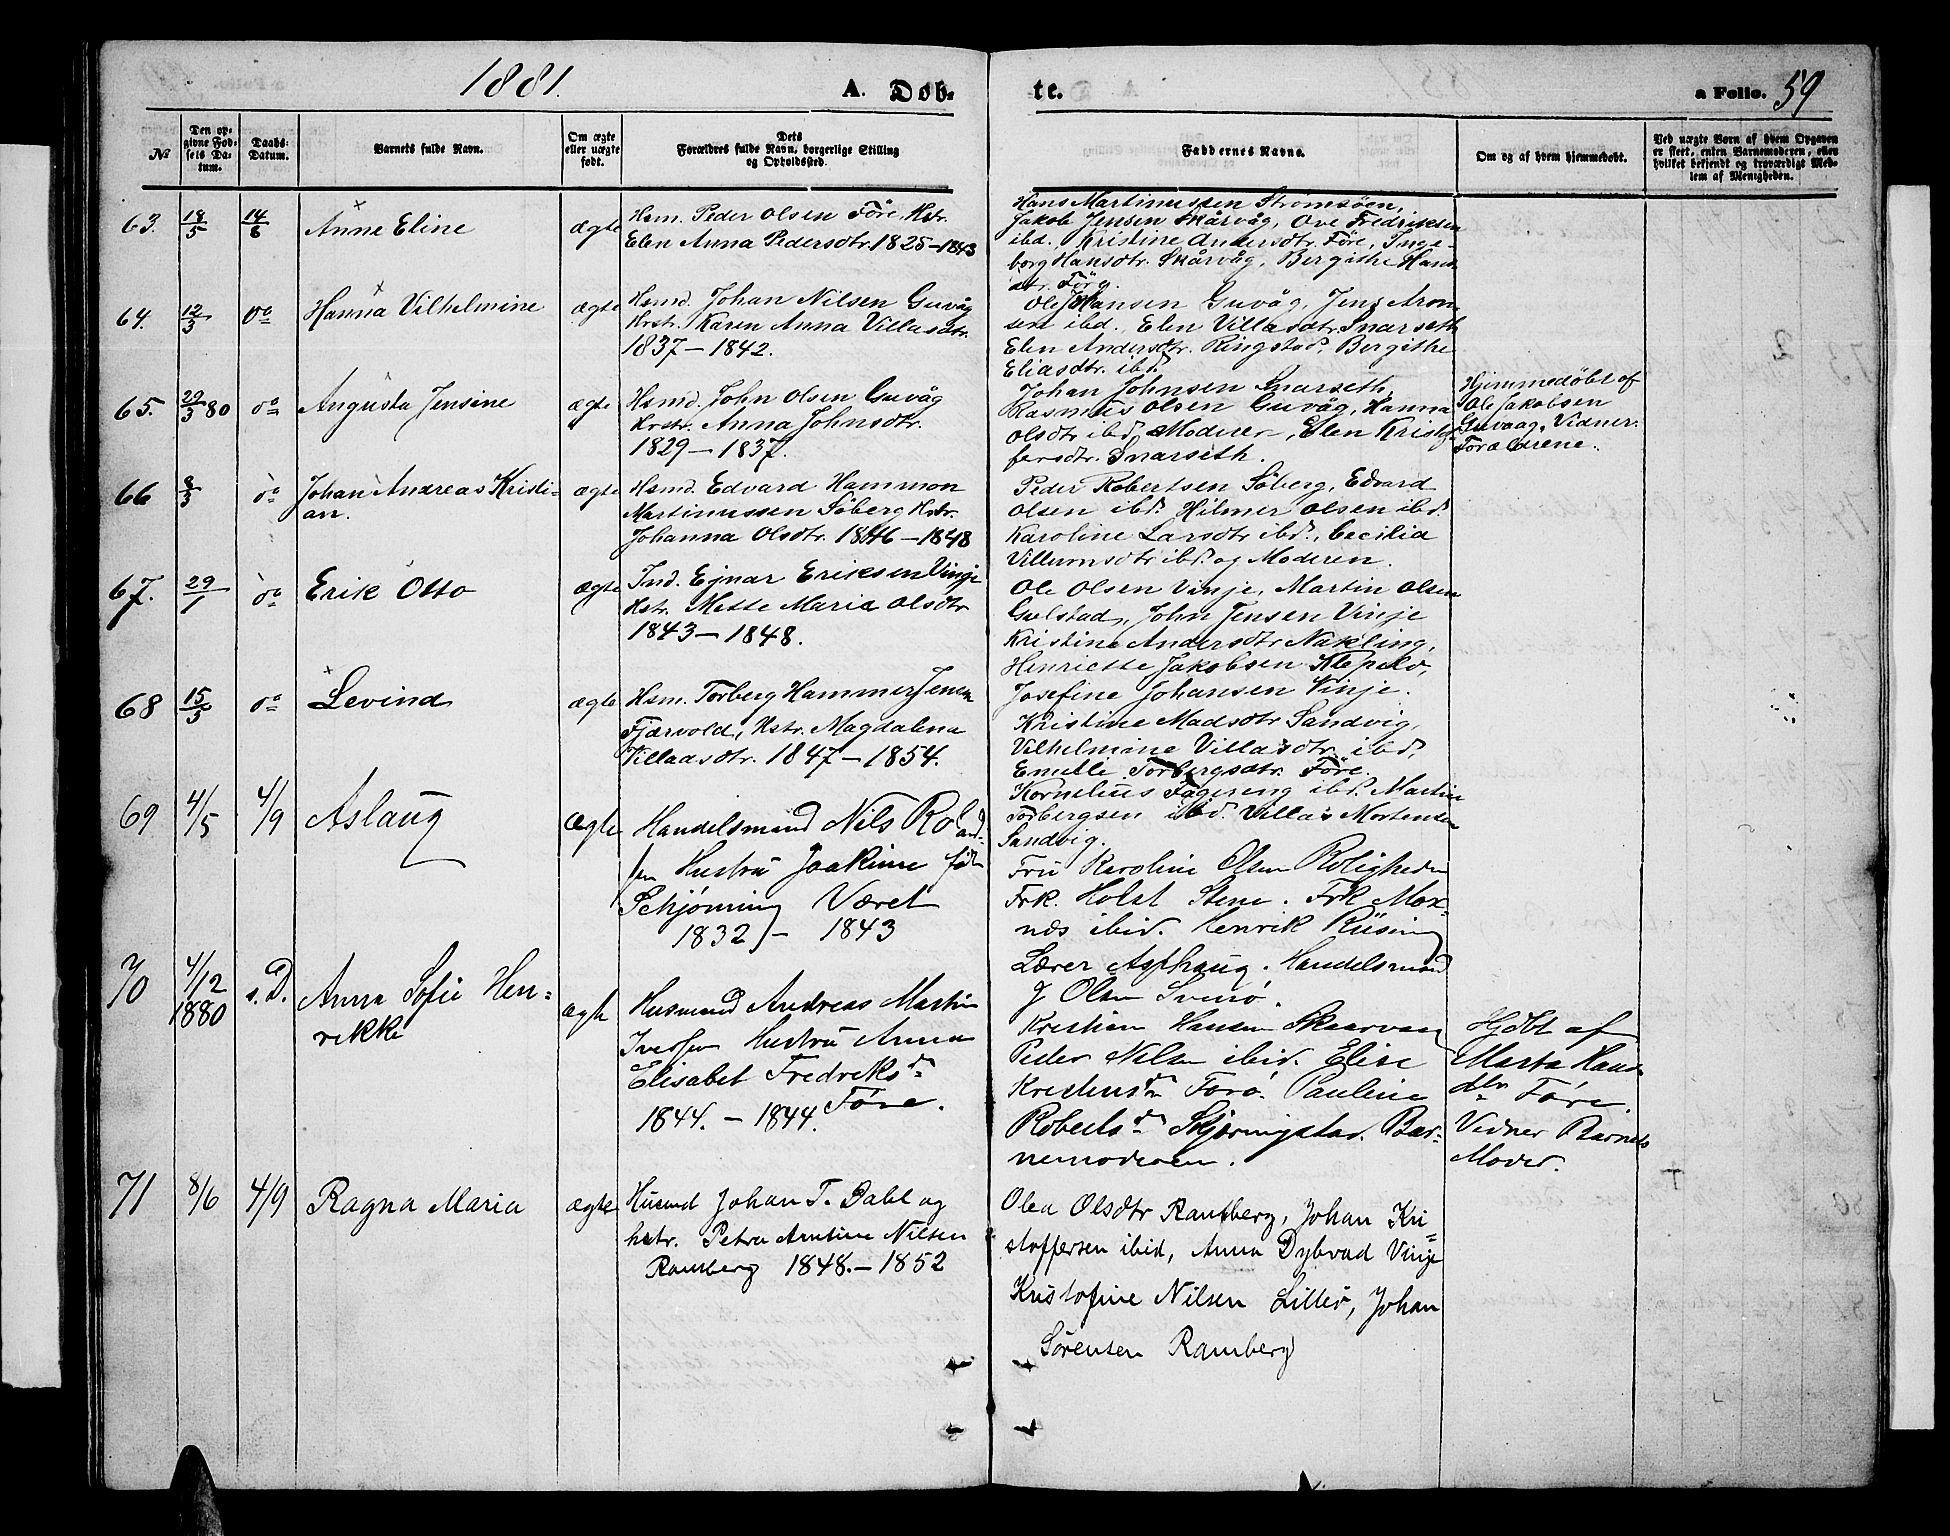 1881.
A. Døb-
te.
a Folio. 59
No.
Den op-
givne Fød-
sels Da-
tum.
Daabs-
Datum.
Barnets fulde Navn.
Om ægte
eller uægte
født.
Dets
Forældres fulde Navn, borgerlige Stilling
og Opholdssted.
Faddernes Navne.
Om og af hvem hjemmedøbt.
Ved uægte Børn af hvem Opgaven
er skeet, enten Barnemoderen, eller
hvilket bekjendt og troværdigt Med-
lem af Menigheden.
63. 18/5 14/6 Anne Eline ægte
Hsm. Peder Olsen Före, Hstr.
Elen Anna Pedersdtr. 1825–1843
Hans Martinussen Strömsöen,
Jakob Jensen Skårvåg, Ove Fredriksen
ibd. Kristine Andersdtr. Före, Inge-
borg Hansdtr. Skårvåg, Bergithe Hans
dtr. Förg.
64. 12/3 do Hanna Vilhelmine ægte
Hsmd. Johan Nilsen Guvåg
Hrstr. Karen Anna Villasdtr.
1837–1842.
Ole Hansen Guvåg, Jens Aron
sen ibd. Elen Villasdtr. Snarseth
Elen Andersdtr. Ringstad, Bergithe
Eliasdtr. ibd.
65. 29/3 80 do Augusta Jensine ægte
Hsmd. John Olsen Guvåg
Hrstr. Anna Johnsdtr.
1829–1837.
Johan Johnsen Snarseth,
Rasmus Olsen Guvåg, Hanna
Olsdtr ibd, Moderen, Elen Kristof
fersdtr. Snarseth.
Hjemmedöbt af
Ole Jakobsen
Guvaag. Vidner.
Forældrene.
66 8/3 do Johan Andreas Kristi-
an. ægte
Hsmd. Edvard Hammon
Martinussen Söberg Hstr.
Johanna Olsdtr. 1846–1848
Peder Robertsen Söberg, Edvard
Olsen ibd. Hilmer Olsen ibd.
Karoline Larsdtr ibd., Cecilia
Villumsdtr ibd. og Moderen.
67. 29/1 do Erik Otto ægte
Ind. Ejnar Eriksen Vinje
Hstr. Mette Maria Olsdtr
1843–1848.
Ole Olsen Vinje, Martin Olsen
Gulstad, John Jensen Vinje
Kristine Andersdtr Nükling,
Henriette Jakobsen
Josefine Johansen Vinje.
68 15/5 do Levind ægte
Hsm. Torberg Hammer Jensen
Fjærvold, Hstr. Magdalena
Villadsdtr. 1847–1854.
Kristine Madsdtr Sandvig,
Vilhelmine Villasdtr. ibd,
Emelie Torbergsdtr. Före.
Kornelius Fagereng ibd. Martin
Torbergsen ibd. Villas Mortensen
Sandvig.
69 4/5 4/9 Aslaug ægte
Handelsmand Nils Roland-
sen Hustru Joakime född
Schjønning Været
1832 – 1843
Fru Karoline Olsen Roligheden
Frk. Holst Stene. Frk Mox-
nes ibid. Henrik Rüsing
Lærer Asphaug. Handelsmand
J Olsen Svinø.
70 4/12 1880 s. D. Anna Sofie Hen-
rikke ægte
Husmand Andreas Martin
Iversen Hustru Anna
Elisabet Fredriksdr
1844.–1844. Føre.
Kristian Hansen Skaarvaag
Peder Nilsen ibid. Elise
Føre. Pauline
Robertsdr Skjørringstad. Bar-
nemoderen.
Hjdbt af
Marta Hans
dtr Føre.
Vidner Barnets
Moder.
71 8/6 4/9 Ragna Maria ægte
Husmd Johan T. Dahl og
hstr. Petra Antine Nilsen
Ramberg 1848.–1852
Olea Olsdtr Ramberg, Johan Kri-
stoffersen ibid, Anna Dybvad Vinje
Kristofine Nilsen Lillø, Johan
Sørensen Ramberg